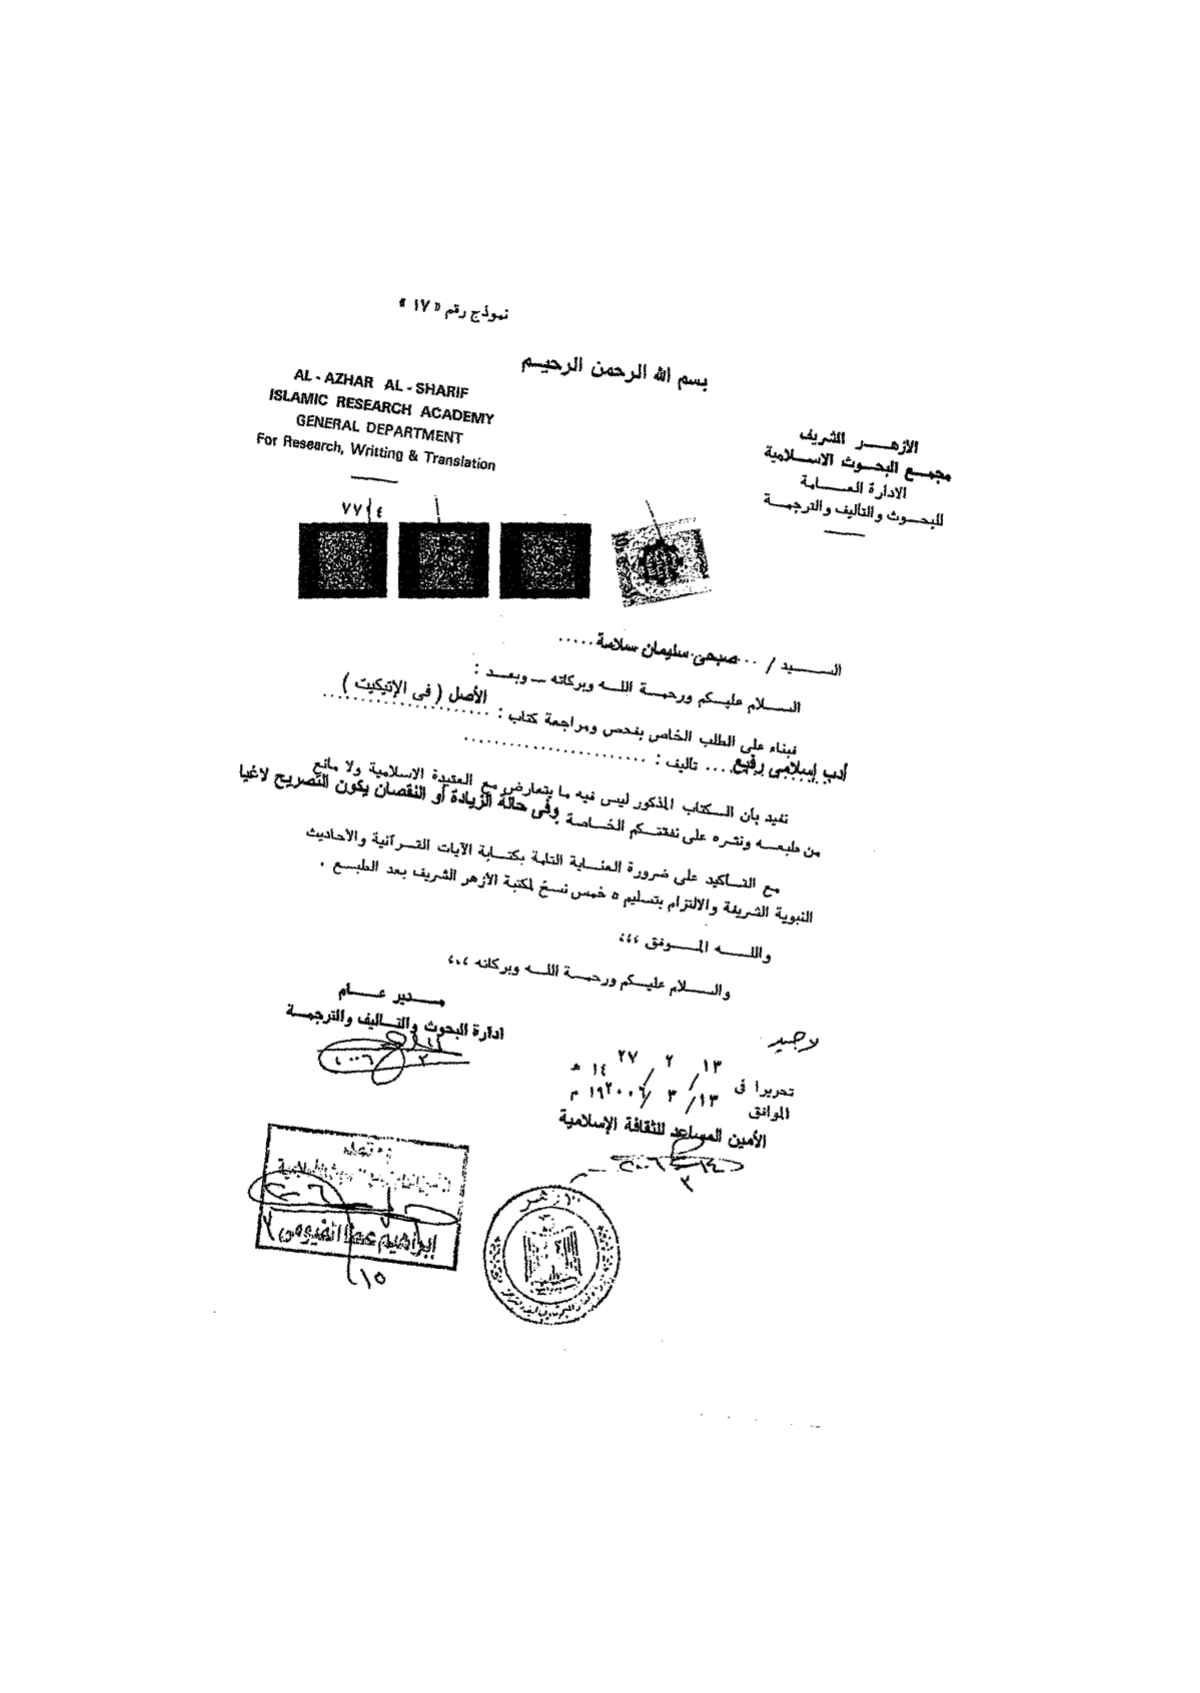 نموذج رقم «١٧»
بسم الله الرحمن الرحيم
AL - AZHAR AL - SHARIF
ISLAMIC RESEARCH ACADEMY
GENERAL DEPARTMENT
For Research, Writting & Translation
الأزهر الشريف
مجمع البحوث الاسلامية
الادارة العامة
للبحوث والتأليف والترجمة
السيد / صبحى سليمان سلامة .....
السلام عليكم ورحمة الله وبركاته — وبعد :
فبناء على الطلب الخاص بفحص ومراجعة كتاب : الأصل ( فى الإتيكيت )
أدب إسلامى رفيع .... تأليف : ......................
نفيد بأن الكتاب المذكور ليس فيه ما يتعارض مع العقيدة الاسلامية ولا مانع
من طبعه ونشره على نفقتكم الخاصة وفى حالة الزيادة أو النقصان يكون التصريح لاغيا
مع التأكيد على ضرورة العناية التامة بكتابة الآيات القرآنية والأحاديث
النبوية الشريفة والالتزام بتسليم ٥ خمس نسخ لمكتبة الأزهر الشريف بعد الطبع .
والله الموفق ،،،
والسلام عليكم ورحمة الله وبركاته ،،،
مدير عام
ادارة البحوث والتأليف والترجمة
تحريرا فى ١٣ / ٢ / ١٤٢٧ هـ
الموافق ١٣ / ٣ / ٢٠٠٦ ١٩ م
الأمين المساعد للثقافة الإسلامية
إبراهيم عطا الفيومى
١٥